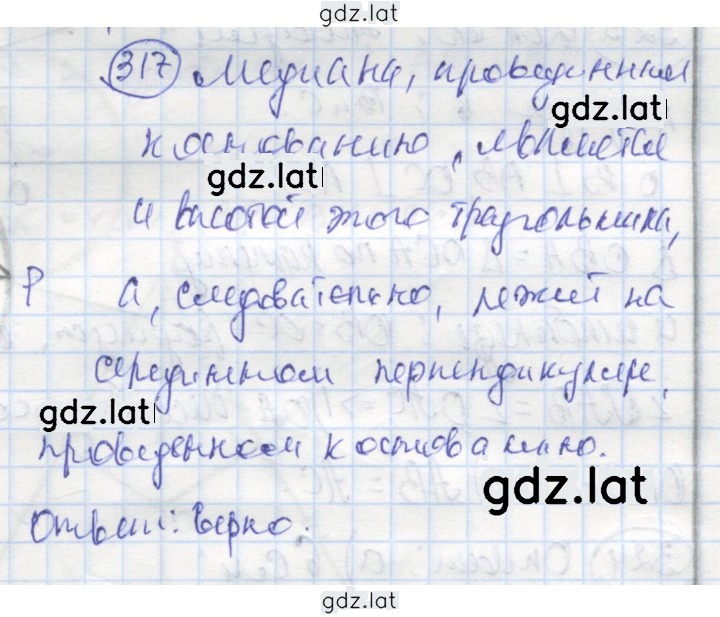 gdz.lat
317 Медиана, проведенная
gdz.lat
к основанию, является
gdz.lat
и высотой этого треугольника,
а, следовательно, лежит на
серединном перпендикуляре,
gdz.lat
проведенном к основанию.
gdz.lat
Ответ: Верно.
gdz.lat